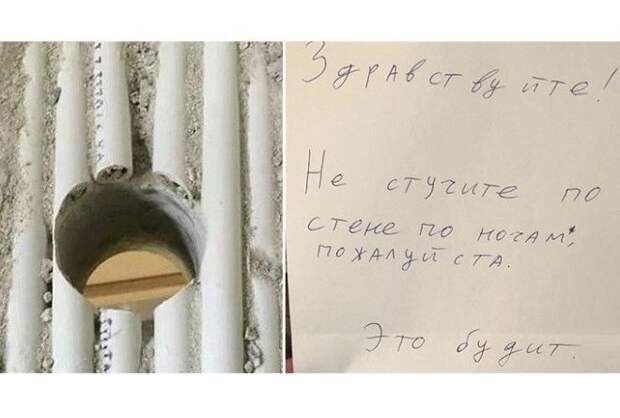 Здравствуйте!
Не стучите по
стене по ночам,
пожалуйста.
Это будит.